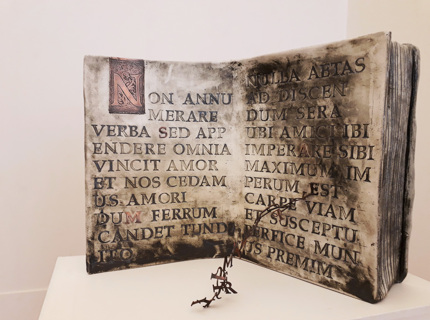 NON ANNU
MERARE
VERBA SED APP
ENDERE OMNIA
VINCIT AMOR
ET NOS CEDAM
US AMORI
DUM FERRUM
CANDET TUNDI
ITO
NULLA AETAS
AD DISCEN
DUM SERA
UBI AMICI IBI
IMPERARE SIBI
MAXIMUM IM
PERUM EST
CARPE VIAM
ET SUSCEPTU
PERFICE MUN
US PREMIM